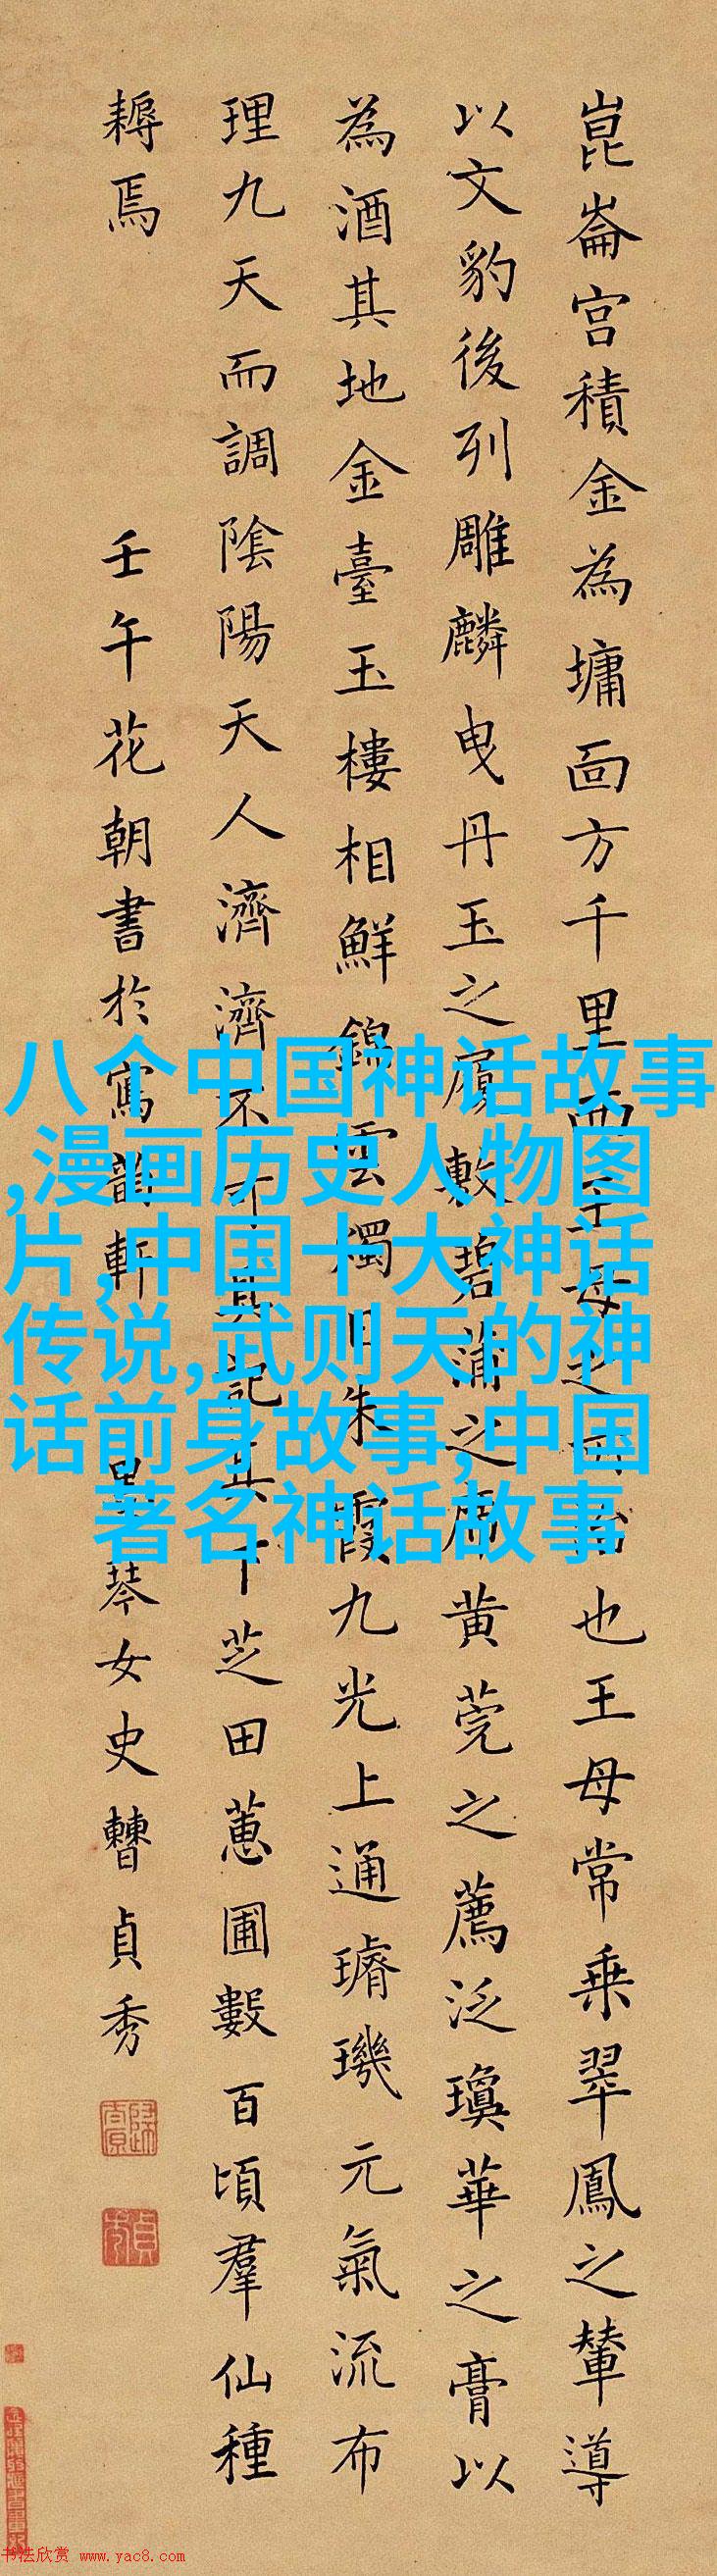 崑崙宮積金為墉面方千里西王母之所治也王母常乘翠鳳之輦導
以文豹後列雕麟曳丹玉之履敷碧蒲之席黄莞之薦泛瓊華之膏以
為酒其地金臺玉樓相鮮錦雲燭日朱霞九光上通璿璣元氣流布
理九天而調陰陽天人濟濟不可具記其下芝田蕙圃數百頃羣仙種
耨焉 壬午花朝書於寫韻軒 墨琴女史曹貞秀
八个中国神话故事
,漫画历史人物图
片,中国十大神话
传说,武则天的神
话前身故事,中国
著名神话故事
书法欣赏 www.yac8.com